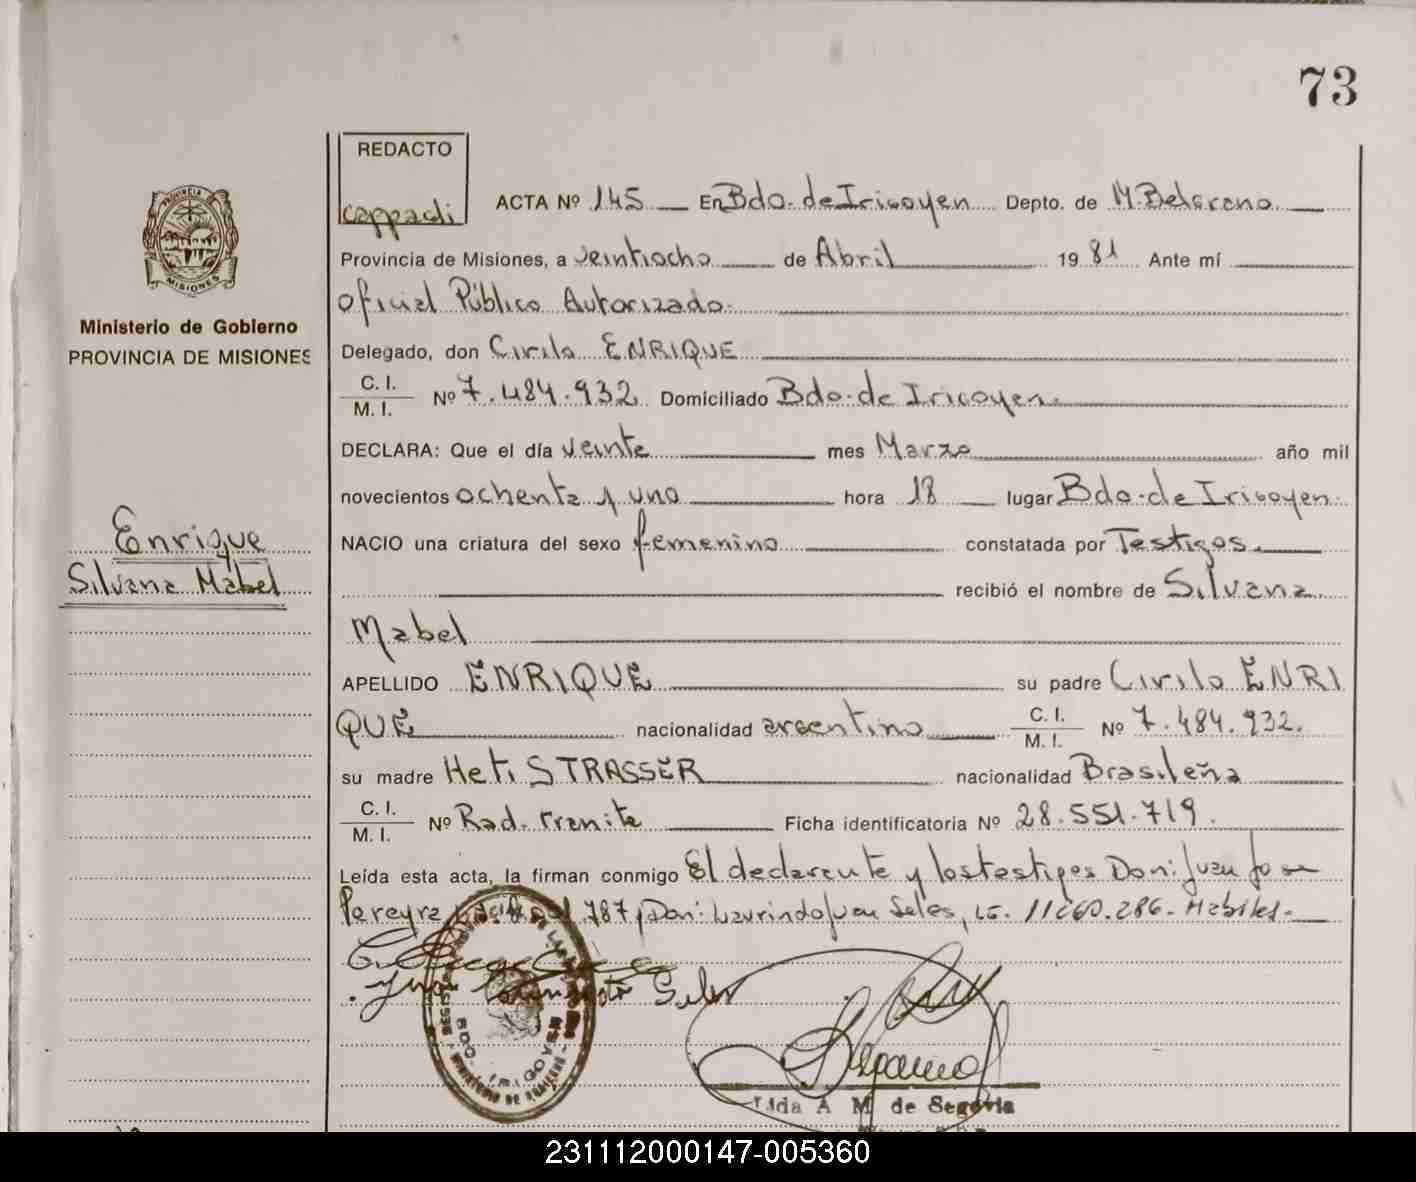 73
REDACTO
ACTA Nº 145 En Bdo. de Irigoyen Depto. de M. Belgrano
Provincia de Misiones, a veintiocho de Abril 19 81 Ante mí
Oficial Público Autorizado.
Ministerio de Gobierno
PROVINCIA DE MISIONES
Delegado, don Cirilo ENRIQUE
C. I.
M. I. Nº 7.484.932 Domiciliado Bdo. de Irigoyen.
DECLARA: Que el día veinte mes Marzo año mil
novecientos ochenta y uno hora 18 lugar Bdo. de Irigoyen.
Enrique
Silvana Mabel
NACIO una criatura del sexo femenino constatada por Testigos.
recibió el nombre de Silvana
Mabel
APELLIDO ENRIQUE su padre Cirilo ENRI
QUE nacionalidad argentino C. I. M. I. Nº 7.484.932.
su madre Heti STRASSER nacionalidad Brasileña
C. I.
M. I. Nº Rad. tramite Ficha identificatoria Nº 28.551.719.
Leída esta acta, la firman conmigo El declarante y los testigos Don: Juan Jose
Pereyra 787, Don: Laurindo Seles, 11260.286. Habiles.
Lida A M de Segovia
231112000147-005360